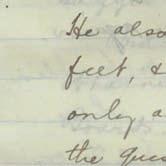 He also
feet, &
only a
the